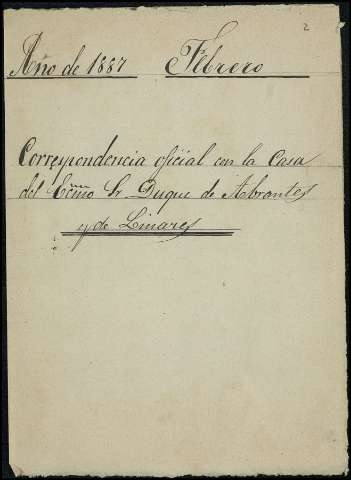 2
Año de 1887 Febrero
Correspondencia oficial con la Casa
del Exmo Sr Duque de Abrantes
y de Linares